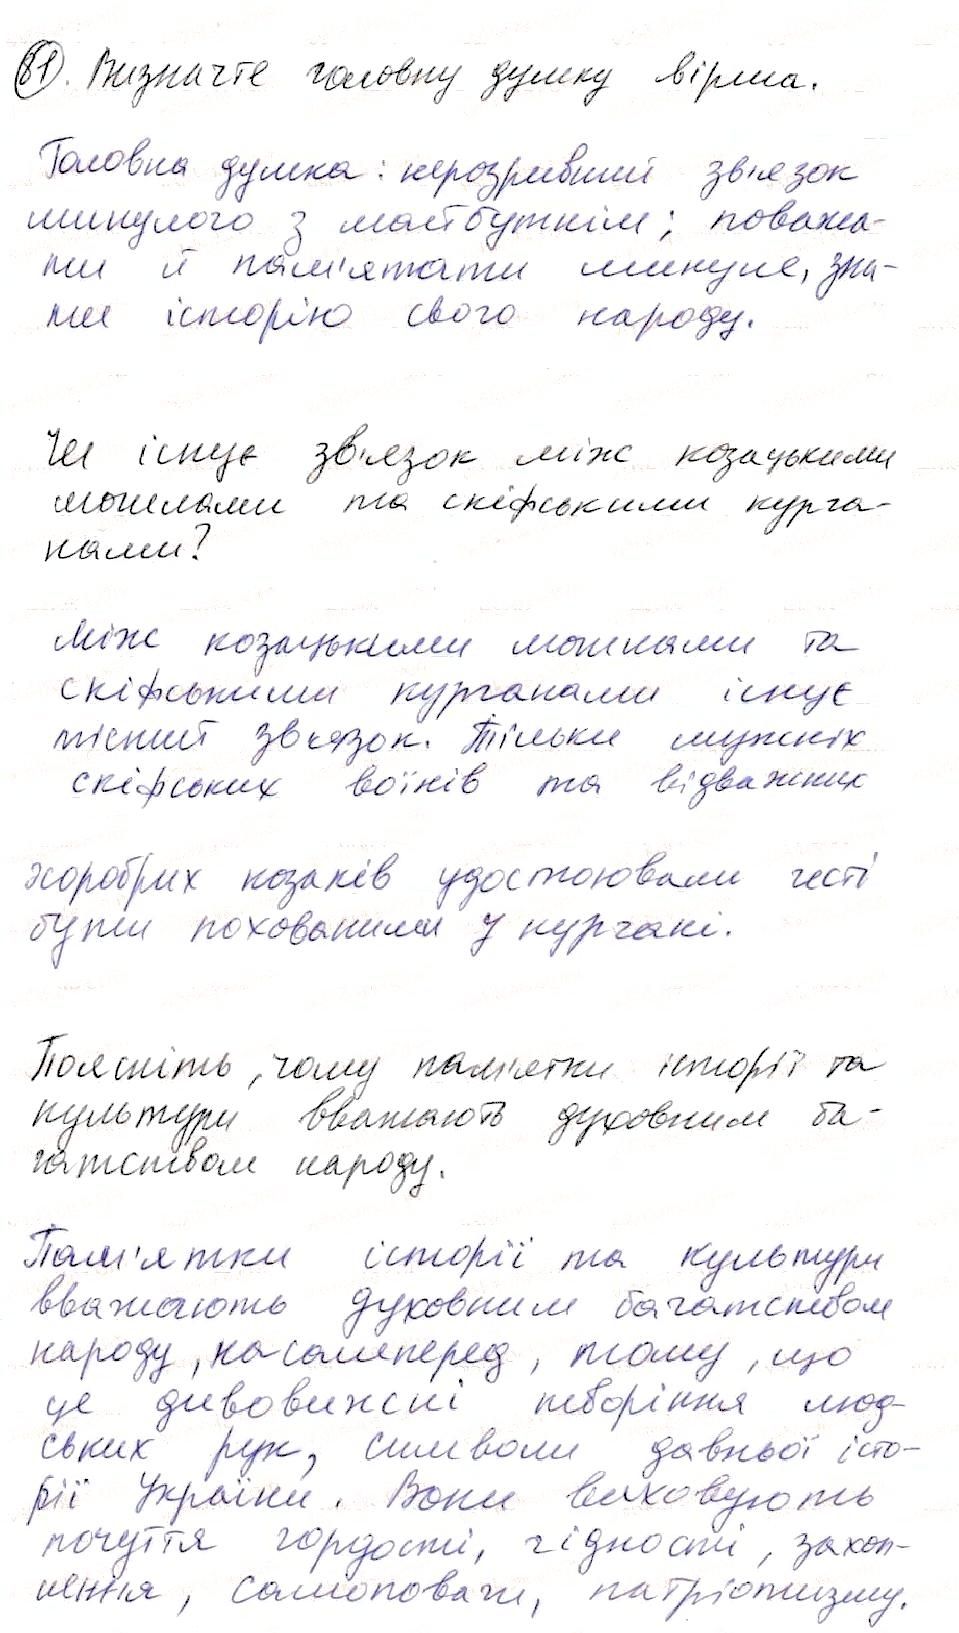 81. Визначте головну думку вірша.
Головна думка: нерозривний зв'язок
минулого з майбутнім; поважа-
ти й пам'ятати минуле, зна-
ти історію свого народу.
Чи існує зв'язок між козацькими
могилами та скіфськими курга-
нами?
Між козацькими могилами та
скіфськими курганами існує
тісний зв'язок. Тільки мужніх
скіфських воїнів та відважних
хоробрих козаків удостоювали честі
бути похованими у кургані.
Поясніть, чому пам'ятки історії та
культури вважають духовним ба-
гатством народу.
Пам'ятки історії та культури
вважають духовним багатством
народу, насамперед, тому, що
це дивовижні творіння люд-
ських рук, символи давньої істо-
рії України. Вони виховують
почуття гордості, гідності, захоп-
лення, самоповаги, патріотизму.